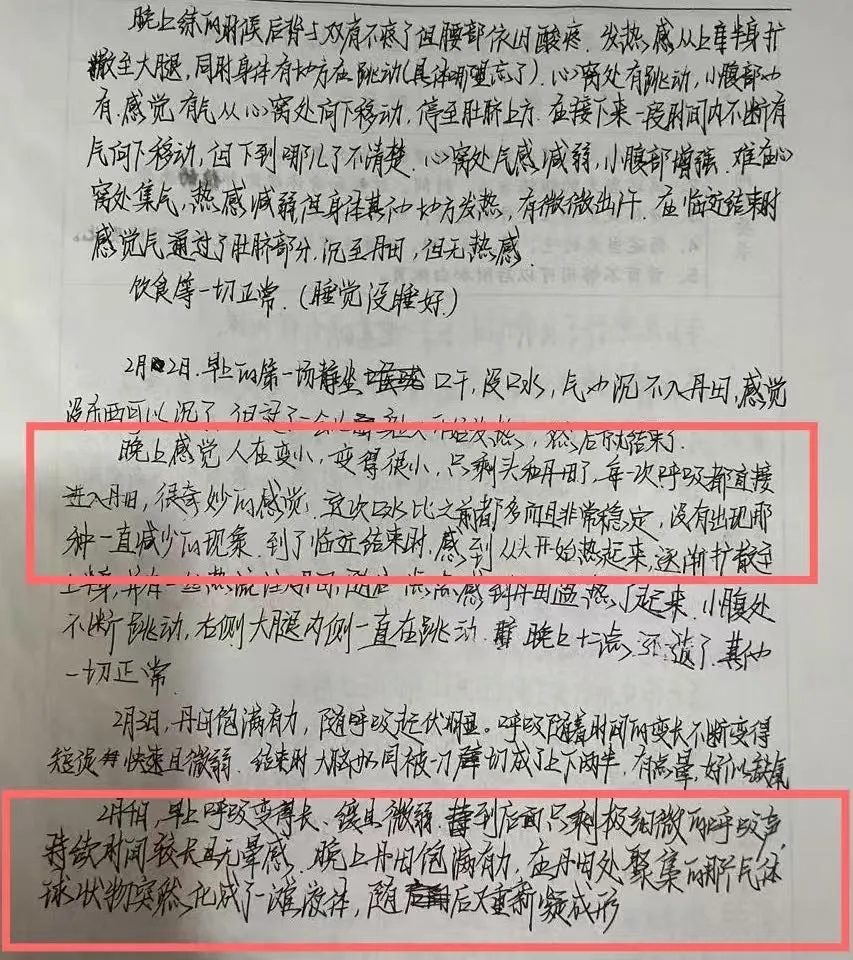 晚上练的时候后背与双肩不疼了但腰部依旧酸疼.发热感从上半身扩
散至大腿,同时身体有地方在跳动(具体哪里忘了).心窝处有跳动,小腹部也
有.感觉有气从心窝处向下移动,停至肚脐上方.在接下来一段时间内不断有
气向下移动,但下到哪儿了不清楚.心窝处气感减弱,小腹部增强.难在心
窝处集气,热感减弱但身体其他地方发热,有微微出汗.在临近结束时
感觉气通过了肚脐部分,沉至丹田,但无热感.
饮食等一切正常.(睡觉没睡好.)
2月2日.早上的第一场静坐口干,没口水,气也沉不入丹田,感觉
没东西可以沉了.但过了一会儿发热,然后就结束了.
晚上感觉人在变小,变得很小,只剩头和丹田了.每一次呼吸都直接
进入丹田,很奇妙的感觉.这次口水比之前都多而且非常稳定,没有出现那
种一直减少的现象.到了临近结束时,感到从头开始热起来,逐渐扩散至
上半身,并有一丝热流往丹田,随后感到丹田温热了起来.小腹处
不断跳动,右侧大腿内侧一直在跳动.晚上十二点遗了.其他
一切正常.
2月3日,丹田饱满有力,随呼吸起伏明显。呼吸随着时间的变长不断变得
短浅快速且微弱.结束时大脑如同被一刀劈切成了上下两半,有点晕,好似缺氧
2月4日,早上呼吸变得长、缓且微弱.到后面只剩极细微的呼吸声,
持续时间较长且无晕感.晚上丹田饱满有力,在丹田处聚集的那个气体
球状物突然化成了一滩液体,随后又重新凝成形